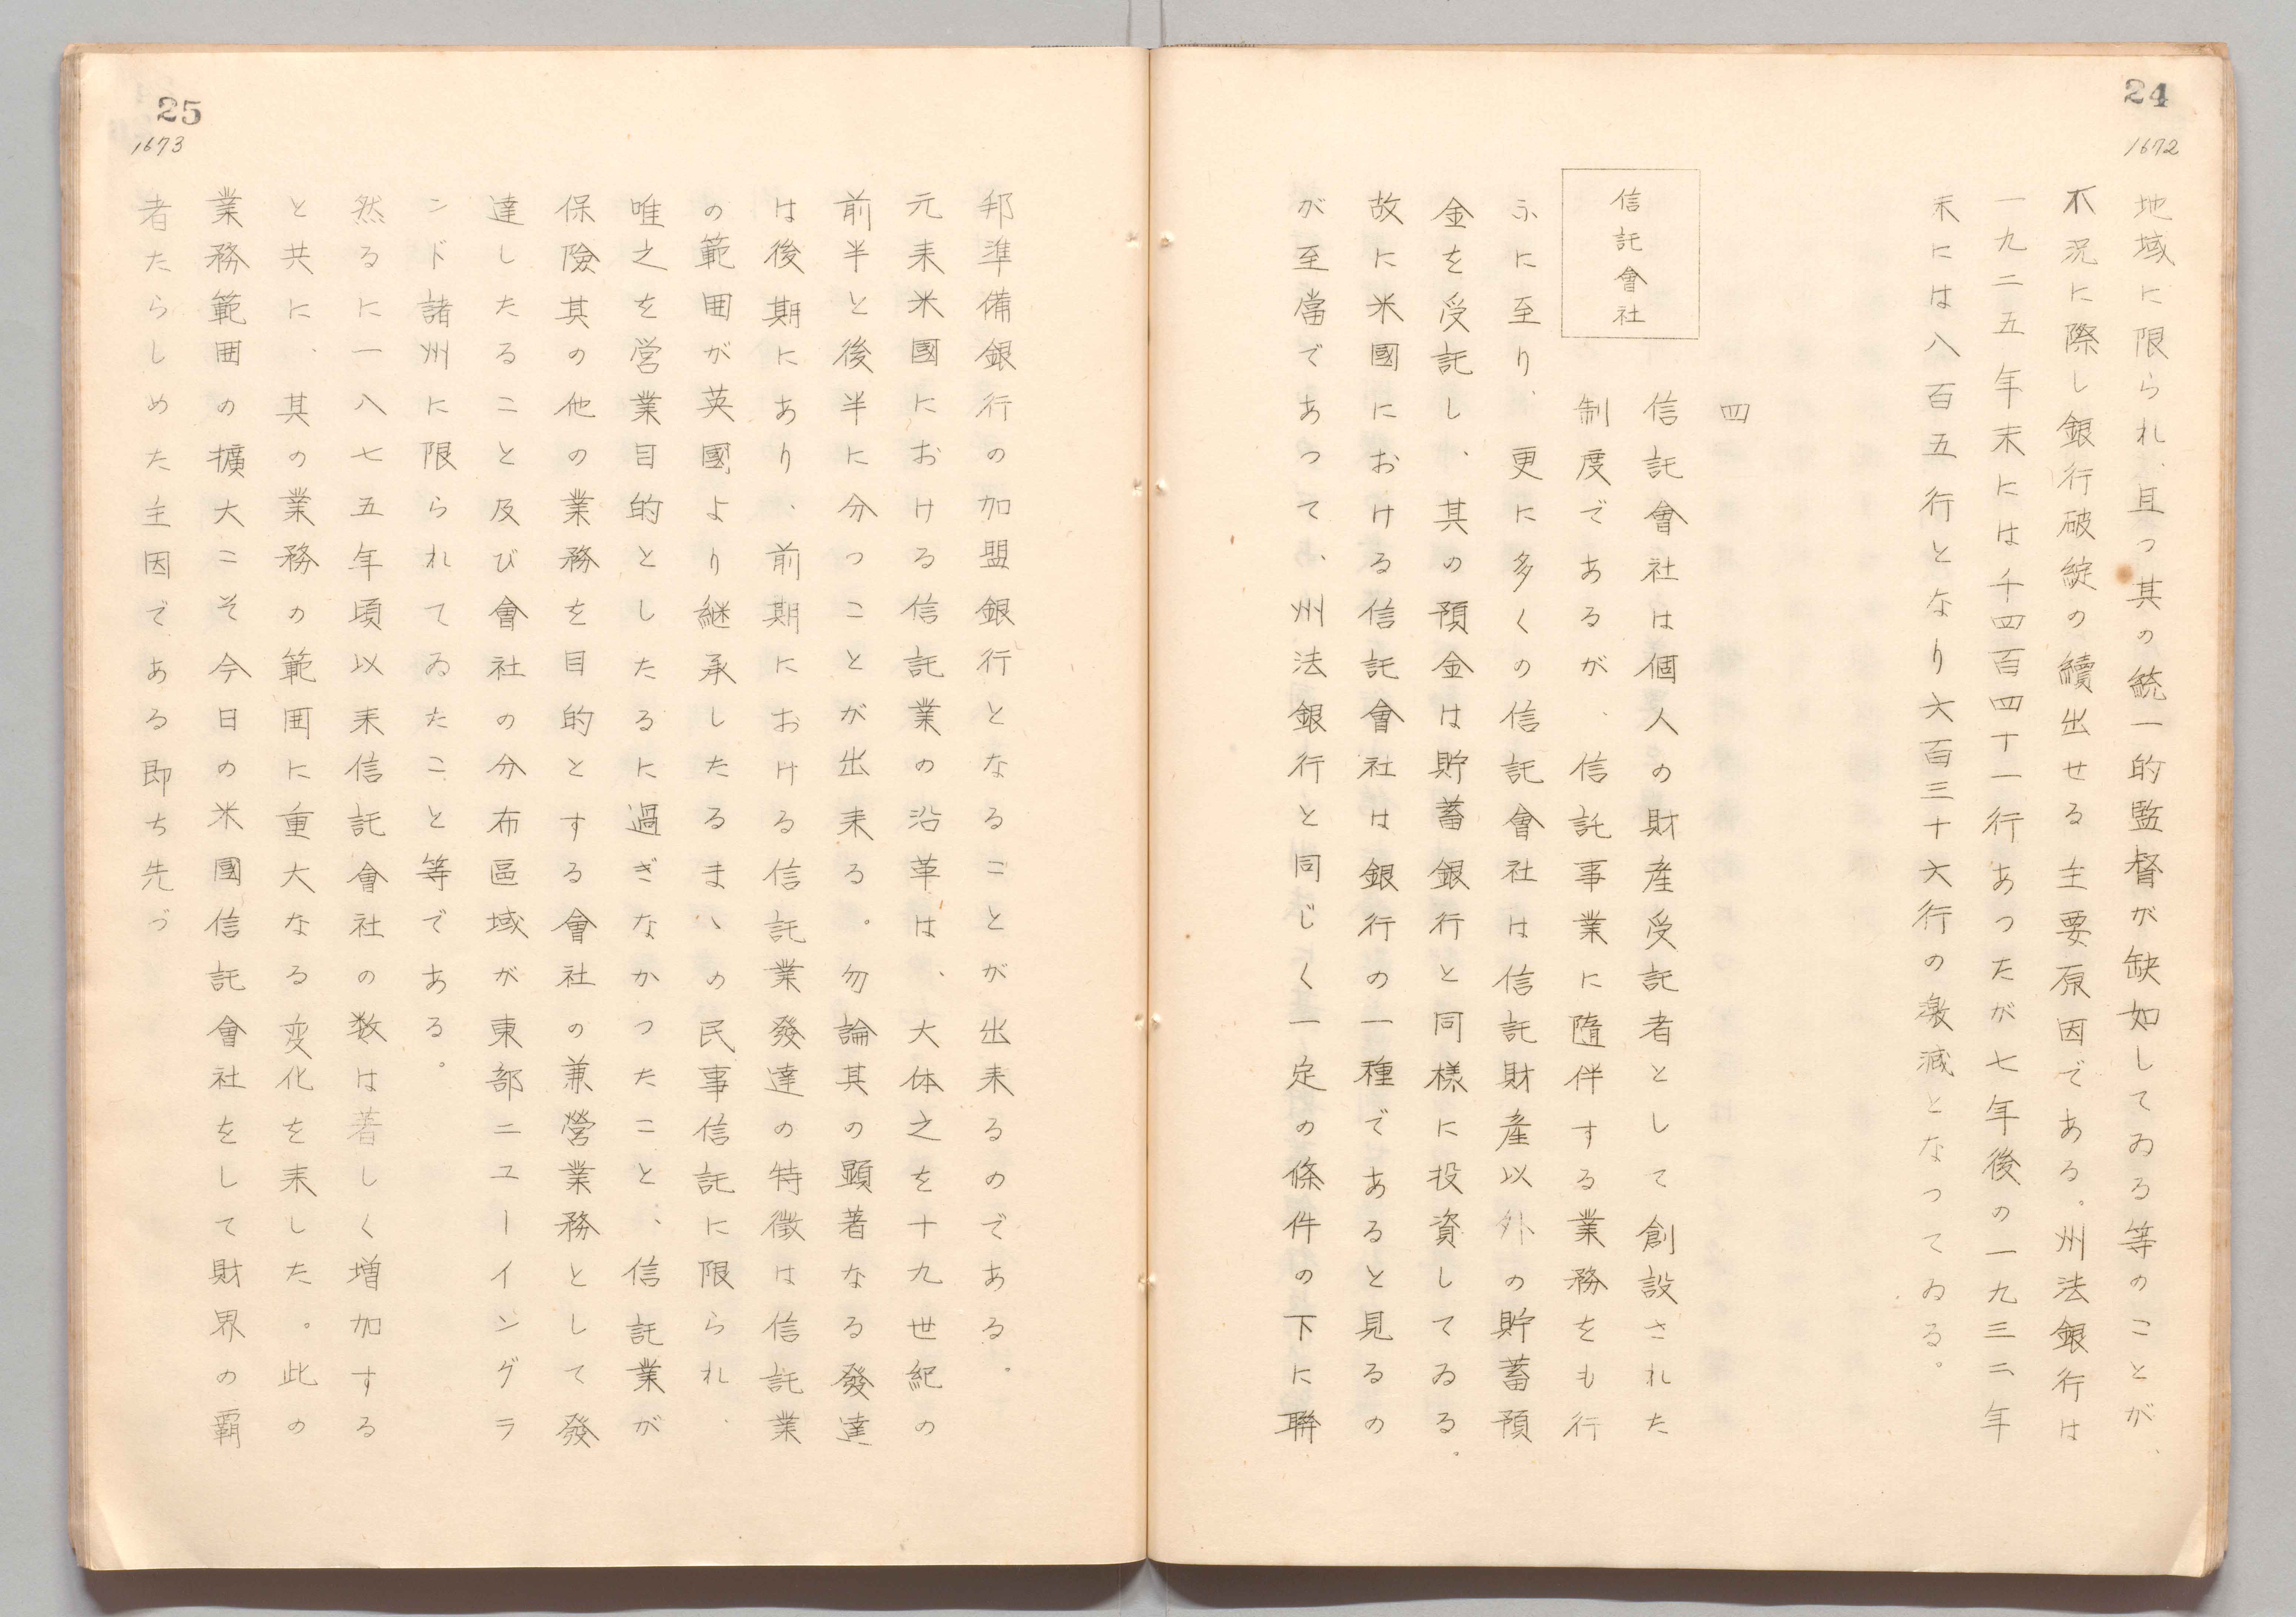 24
1672
地域に限られ、且つ其の統一的監督が缺如してゐる等のことが、
不況に際し銀行破綻の續出せる主要原因である。州法銀行は
一九二五年末には千四百四十一行あつたが七年後の一九三二年
末には八百五行となり六百三十六行の激減となつてゐる。
四
信託會社
信託會社は個人の財産受託者として創設された
制度であるが、信託事業に隨伴する業務をも行
ふに至り、更に多くの信託會社は信託財産以外の貯蓄預
金を受託し、其の預金は貯蓄銀行と同様に投資してゐる。
故に米國における信託會社は銀行の一種であると見るの
が至當であつて、州法銀行と同じく一定の條件の下に聯
25
1673
邦準備銀行の加盟銀行となることが出来るのである。
元来米國における信託業の沿革は、大体之を十九世紀の
前半と後半に分つことが出来る。勿論其の顕著なる發達
は後期にあり、前期における信託業發達の特徴は信託業
の範囲が英國より継承したるまゝの民事信託に限られ、
唯之を営業目的としたるに過ぎなかつたこと、信託業が
保險其の他の業務を目的とする會社の兼營業務として發
達したること及び會社の分布區域が東部ニューイングラ
ンド諸州に限られてゐたこと等である。
然るに一八七五年頃以来信託會社の数は著しく増加する
と共に、其の業務の範囲に重大なる変化を来した。此の
業務範囲の擴大こそ今日の米國信託會社をして財界の覇
者たらしめた主因である即ち先づ